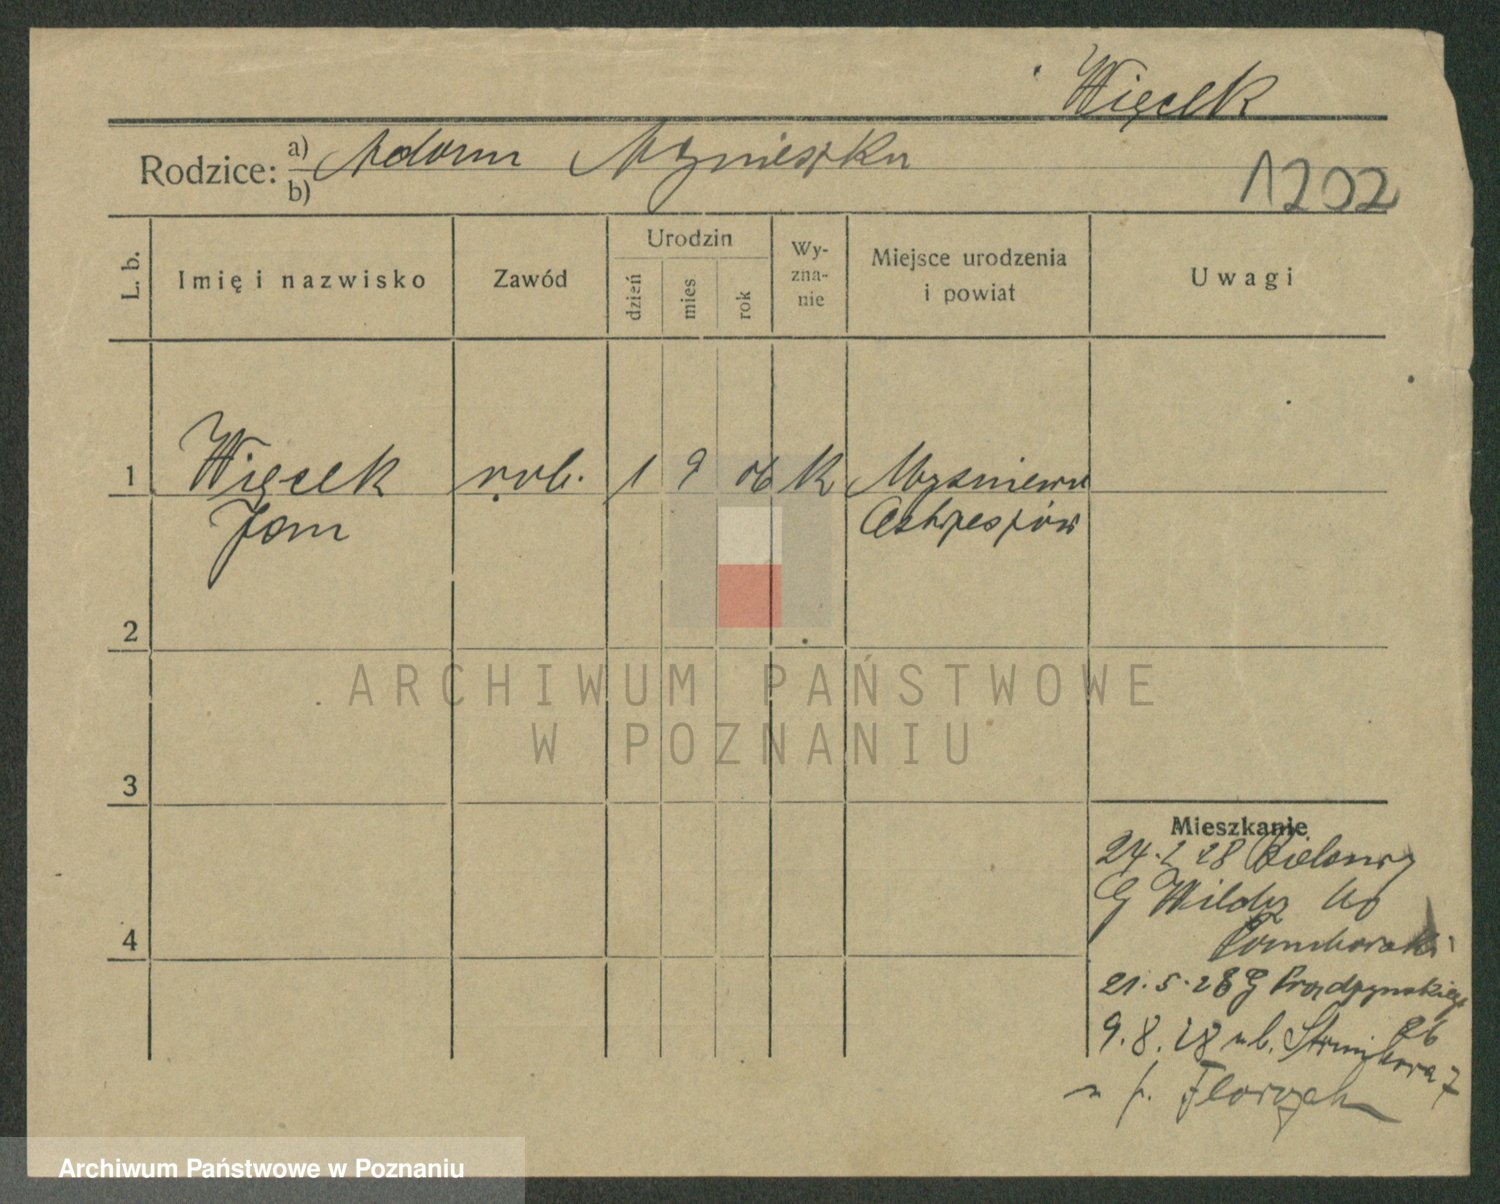 Więcek
Rodzice: a) Adam Agnieszka
b)
1202
L. b.
Imię i nazwisko
Zawód
Urodzin
dzień
mies
rok
Wy-
zna-
nie
Miejsce urodzenia
i powiat
Uwagi
1 Więcek rob. 1 9 06 K Myśniewo
Jan Ostrzeszów
2
3
4
Mieszkanie
24. 28 Bielawy
G Wildy
21.5.28 G Prądzyńskiego
26
9.8.28 Strumykowa 7
ARCHIWUM PAŃSTWOWE
W POZNANIU
Archiwum Państwowe w Poznaniu